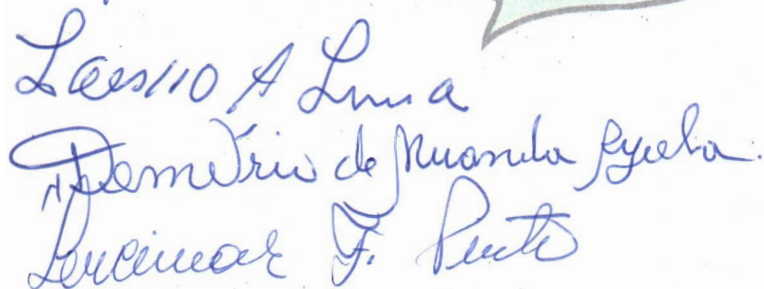 Laesio A Lima
Demétrio de Miranda
Lucimar F. Pinto